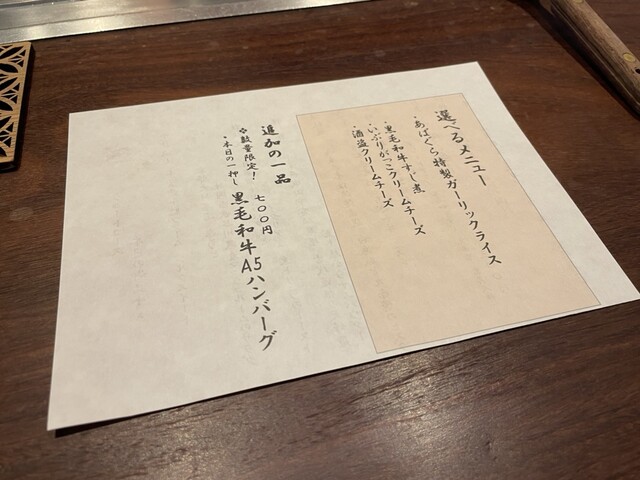 選べるメニュー
・あばぐら特製ガーリックライス
・黒毛和牛すじ煮
・いぶりがっこクリームチーズ
・酒盗クリームチーズ
追加の一品
❖数量限定! 七〇〇円
・本日の一押し 黒毛和牛A5ハンバーグ